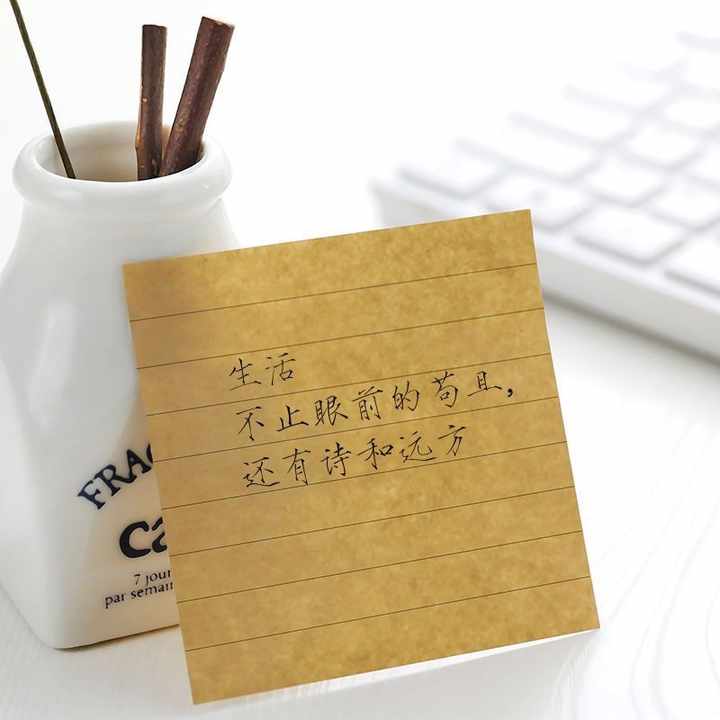 生活
不止眼前的苟且，
还有诗和远方
FRA
7 jour
par semain